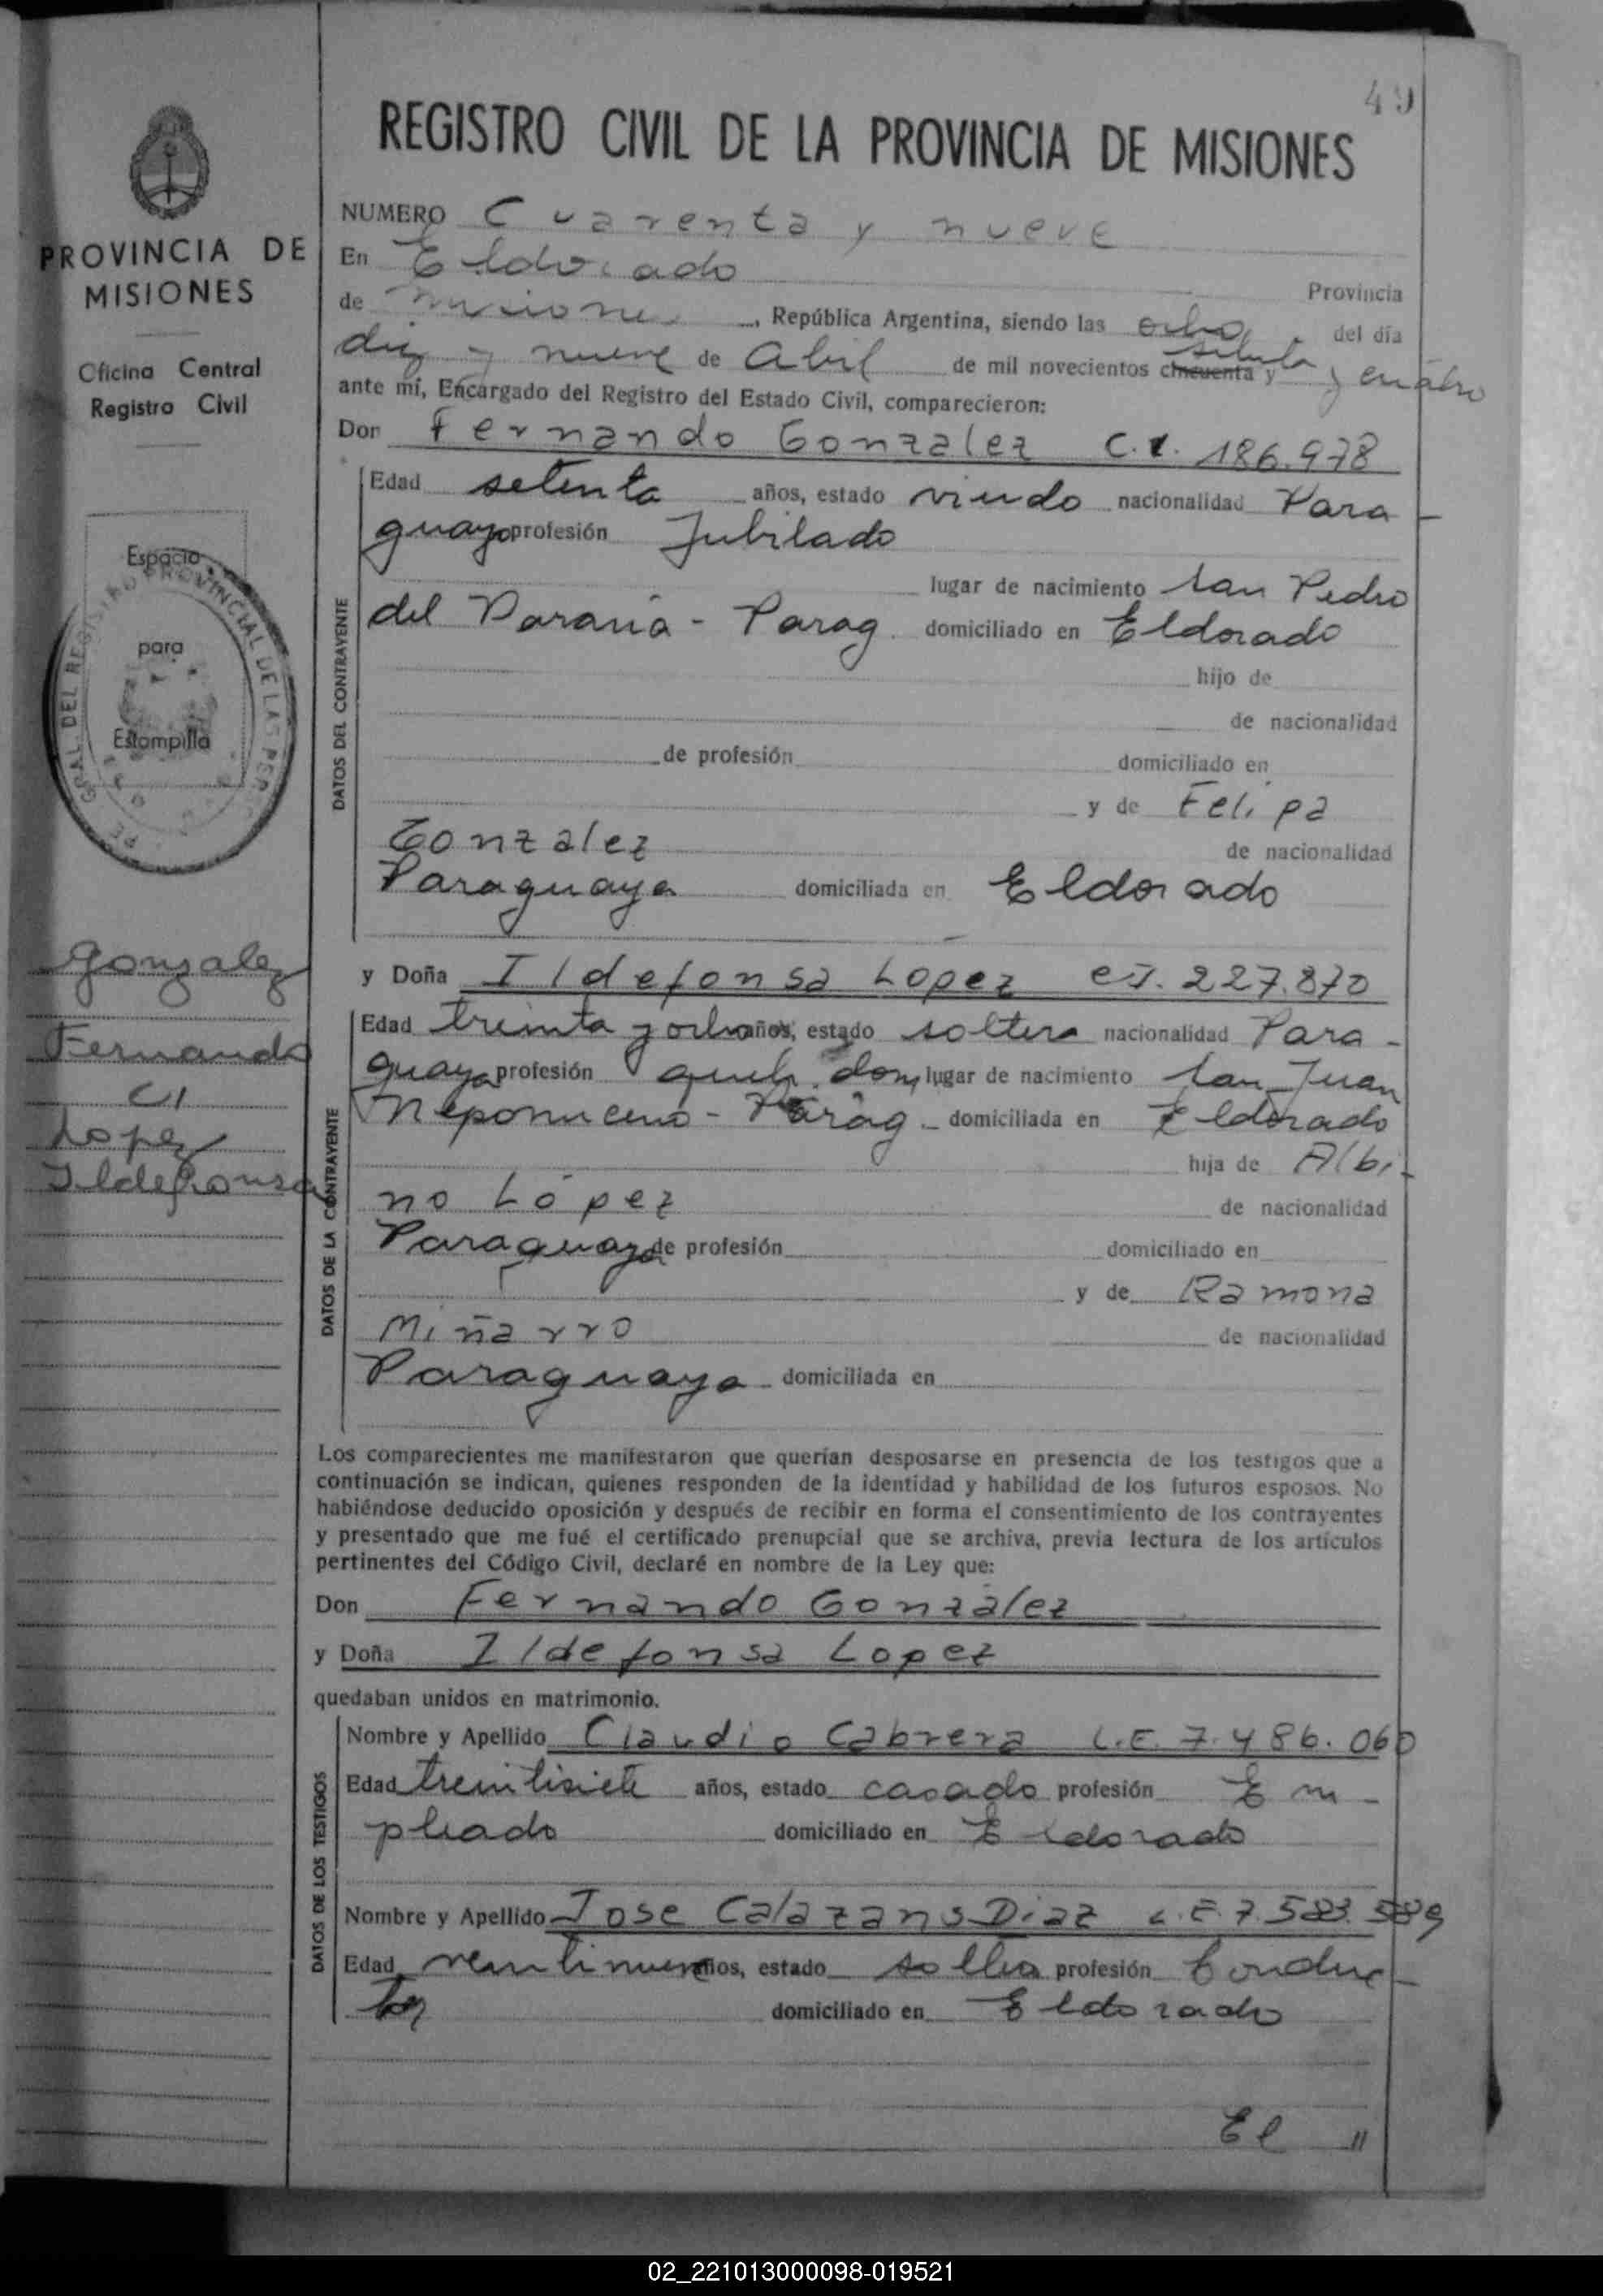 49
REGISTRO CIVIL DE LA PROVINCIA DE MISIONES
PROVINCIA DE
MISIONES
Oficina Central
Registro Civil
Espacio
para
Estampilla
Gonzalez
Fernando
C/
Lopez
Ildefonsa
NUMERO Cuarenta y nueve
En Eldorado
Provincia
de Misiones, República Argentina, siendo las ocho del día
diez y nueve de Abril de mil novecientos cincuenta y setenta y cuatro
ante mí, Encargado del Registro del Estado Civil, comparecieron:
Don Fernando Gonzalez C.I. 186.978
DATOS DEL CONTRAYENTE
Edad setenta años, estado viudo nacionalidad Para-
guayo profesión Jubilado
lugar de nacimiento San Pedro
del Paraná - Parag. domiciliado en Eldorado
hijo de
de nacionalidad
de profesión domiciliado en
y de Felipa
Gonzalez de nacionalidad
Paraguaya domiciliada en Eldorado
y Doña Ildefonsa Lopez CI. 227.870
DATOS DE LA CONTRAYENTE
Edad treinta y ocho años, estado soltera nacionalidad Para-
guaya profesión queh. dom, lugar de nacimiento San Juan
Nepomuceno - Parag. domiciliada en Eldorado
hija de Albi-
no López de nacionalidad
Paraguaya de profesión domiciliado en
y de Ramona
Miñarro de nacionalidad
Paraguaya domiciliada en
Los comparecientes me manifestaron que querían desposarse en presencia de los testigos que a
continuación se indican, quienes responden de la identidad y habilidad de los futuros esposos. No
habiéndose deducido oposición y después de recibir en forma el consentimiento de los contrayentes
y presentado que me fué el certificado prenupcial que se archiva, previa lectura de los artículos
pertinentes del Código Civil, declaré en nombre de la Ley que:
Don Fernando Gonzalez
y Doña Ildefonsa Lopez
quedaban unidos en matrimonio.
DATOS DE LOS TESTIGOS
Nombre y Apellido Claudio Cabrera L.E. 7.486.060
Edad treintisiete años, estado casado profesión Em-
pleado domiciliado en Eldorado
Nombre y Apellido Jose Calazans Diaz L.E. 7.583.589
Edad veintinueve años, estado soltero profesión Conduc-
tor domiciliado en Eldorado
El //
02_221013000098-019521